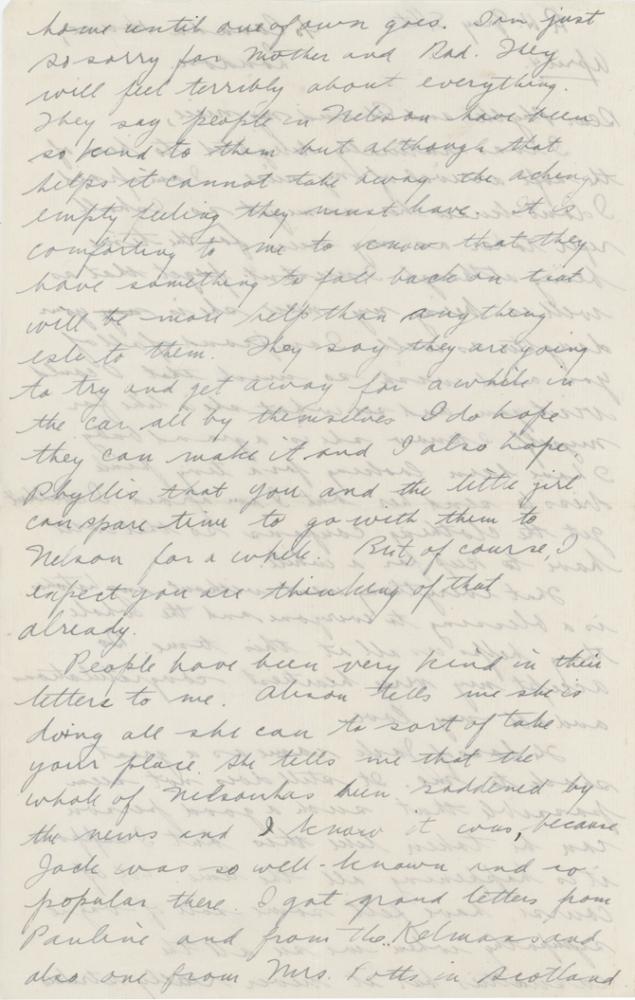 home until one of own goes. I am just
so sorry for Mother and Dad. They
will feel terribly about everything.
They say people in Nelson have been
so kind to them but although that
helps it cannot take away the aching
empty feeling they must have. It is
comforting to me to know that they
have something to fall back on that
will be more help than anything
esle to them. They say they are going
to try and get away for a while in
the car all by themselves I do hope
they can make it and I also hope,
Phyllis that you and the little girl
can spare time to go with them to
Nelson for a while. But, of course, I
expect you are thinking of that
already.
People have been very kind in their
letters to me. Alison tells me she is
doing all she can to sort of take
your place she tells me that the
whole of Nelson has been saddened by
the news and I know it was, because
Jack was so well-known and so
popular there. I got grand letters from
Pauline and from the Kelmans and
also one from Mrs. Potts in Scotland